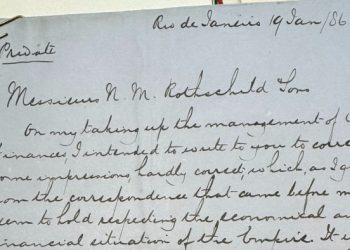 Rio de Janeiro 19 Jan/86
Private
Messieurs N. M. Rothschild Sons
On my taking up the management of
Finances, I intended to write to you to corre
ome impressions hardly correct, which, as I g
om the correspondence that came before m
em to hold respecting the economical an
inancial situation of the Empire. It